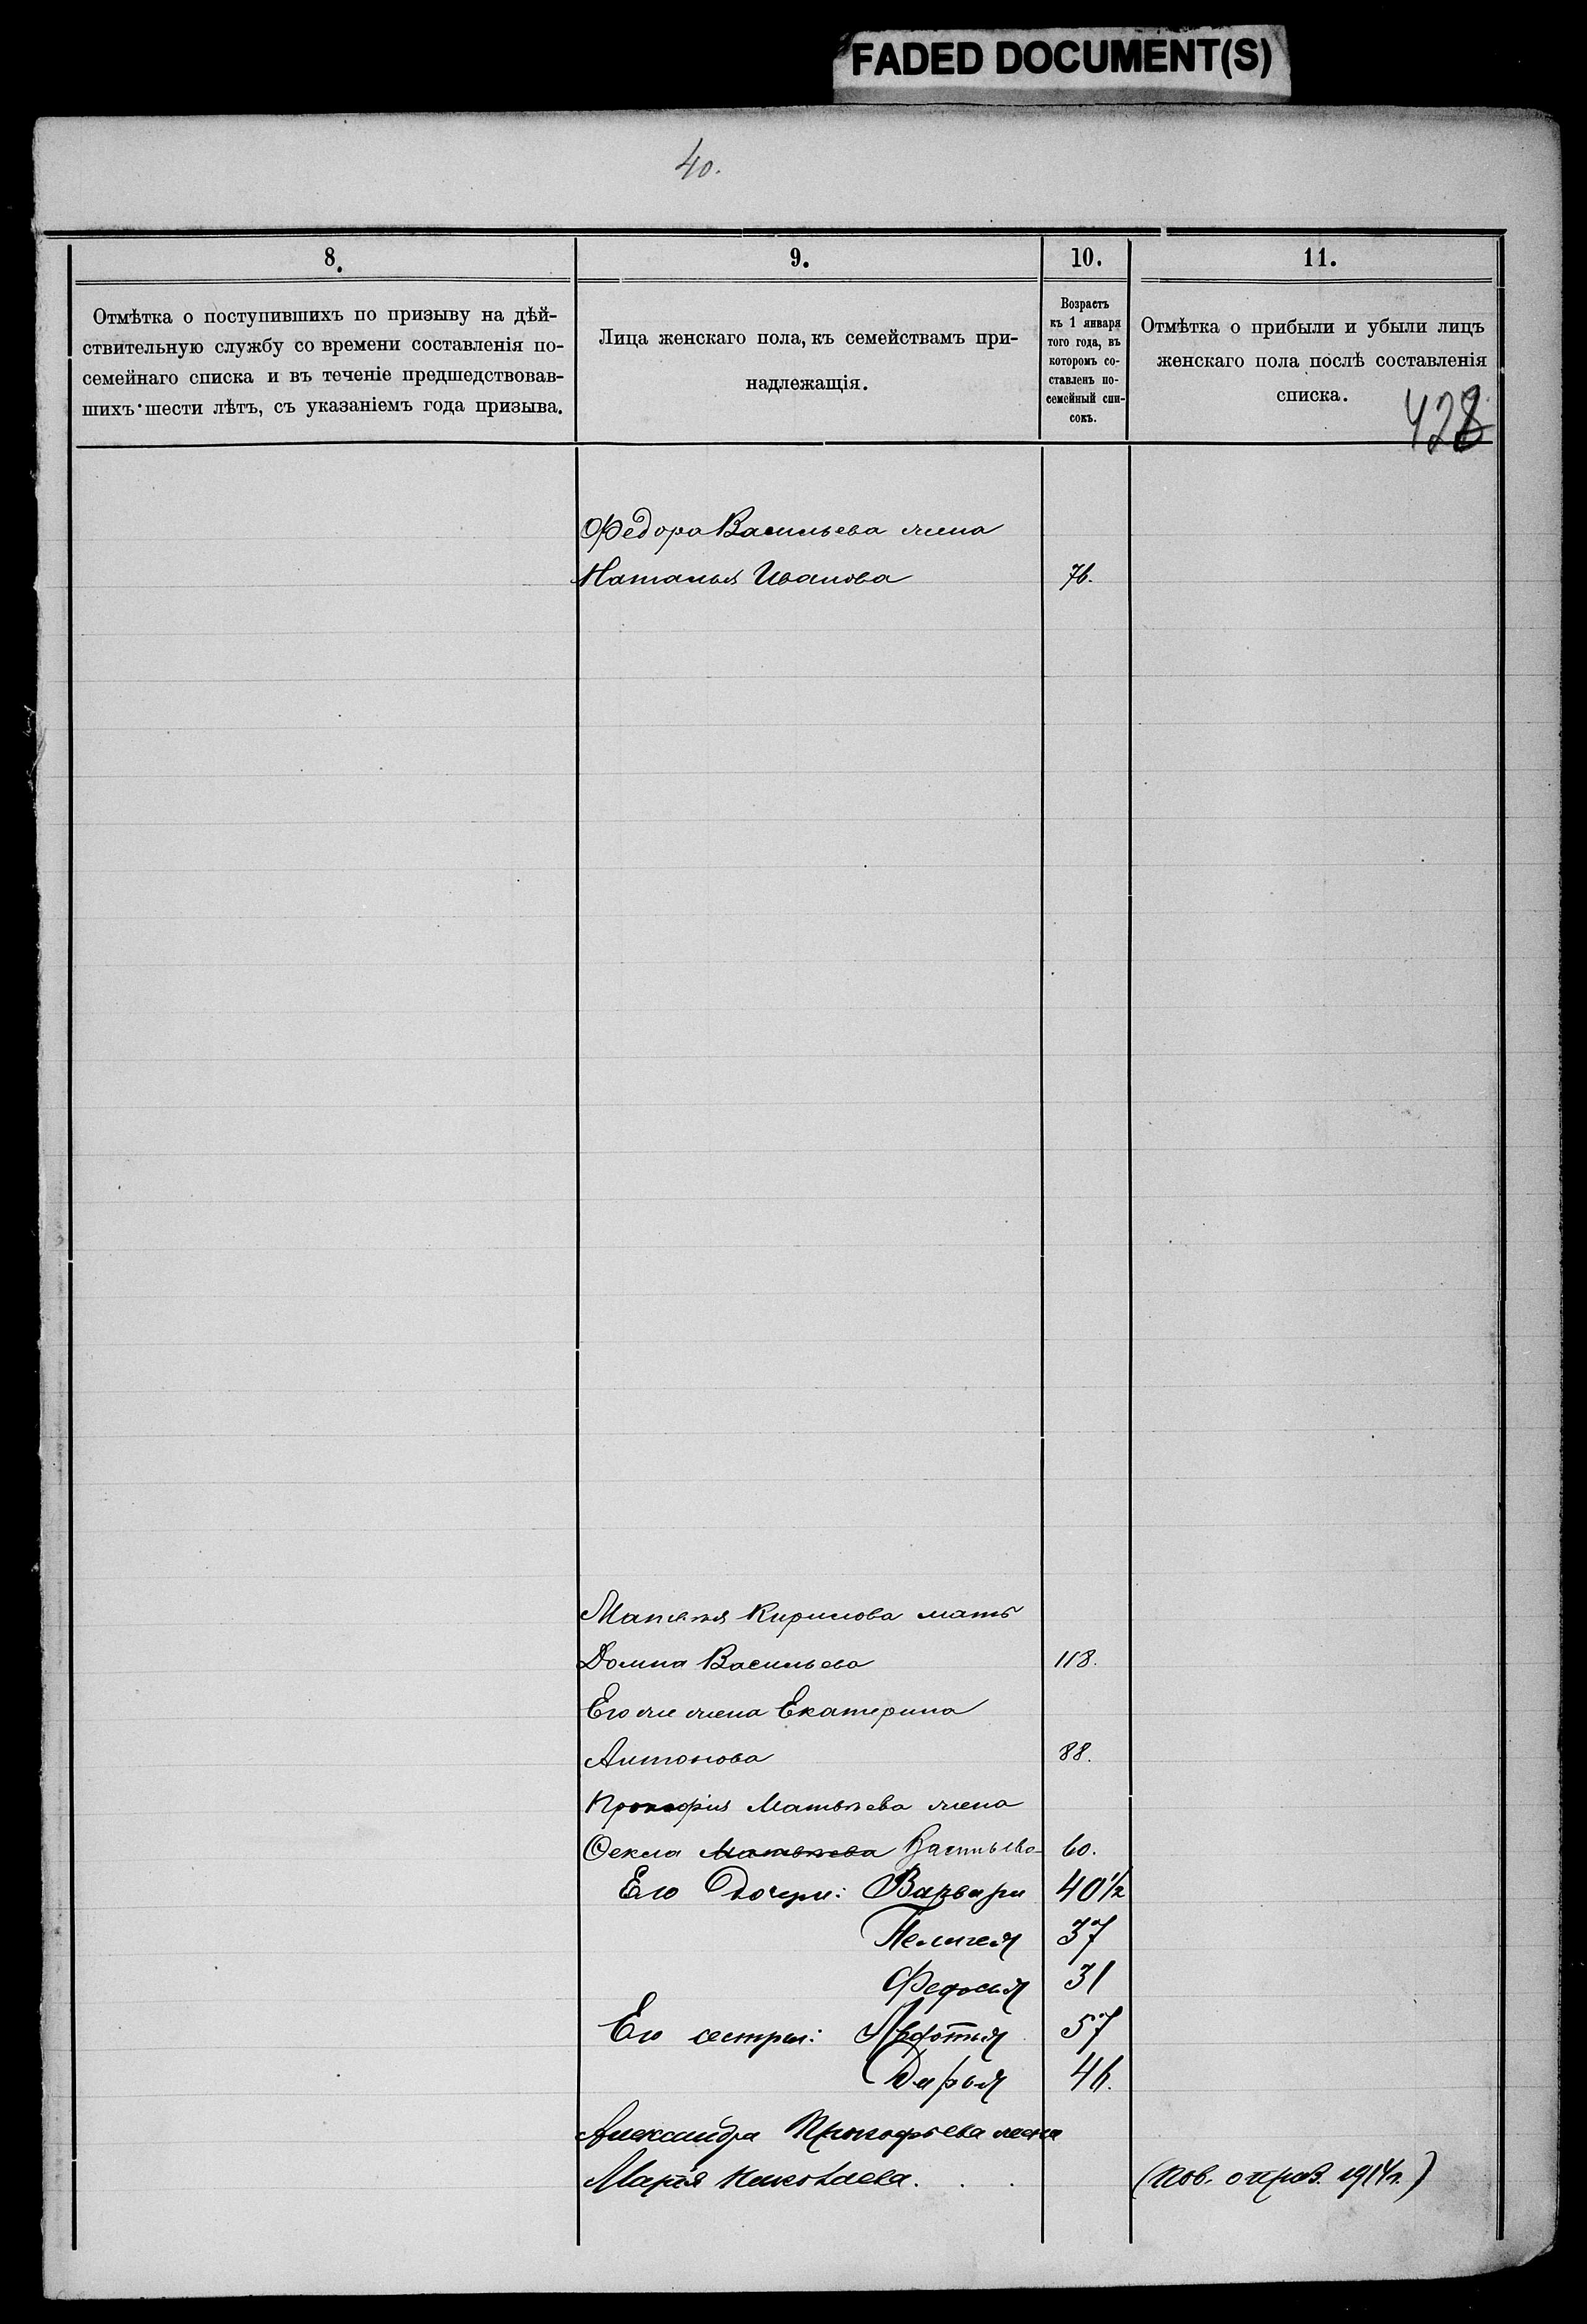 FADED DOCUMENT(S)
40.
8.
9.
10.
11.
Отмѣтка о поступившихъ по призыву на дѣй-
ствительную службу со времени составленія по-
семейнаго списка и въ теченіе предшедствовав-
шихъ шести лѣтъ, съ указаніемъ года призыва.
Лица женскаго пола, къ семействамъ при-
надлежащія.
Возрастъ
къ 1 января
того года, въ
которомъ со-
ставленъ по-
семейный спи-
сокъ.
Отмѣтка о прибыли и убыли лицъ
женскаго пола послѣ составленія
списка.
428
Федора Васильева жена
Наталья Иванова 76.
Матвѣя Кирилова мать
Домна Васильева 118.
Его же жена Екатерина
Антонова 88.
Прокофія Матвѣева жена
Ѳекла Матвѣева Васильева 60.
Его дочери: Варвара 40 1/2
Пелагея 37
Федосья 31
Его сестры: Авдотья 57
Дарья 46.
Александра Прокофьева жена
Марія Николаева. . . (Пов. о прив. 1914 г.)